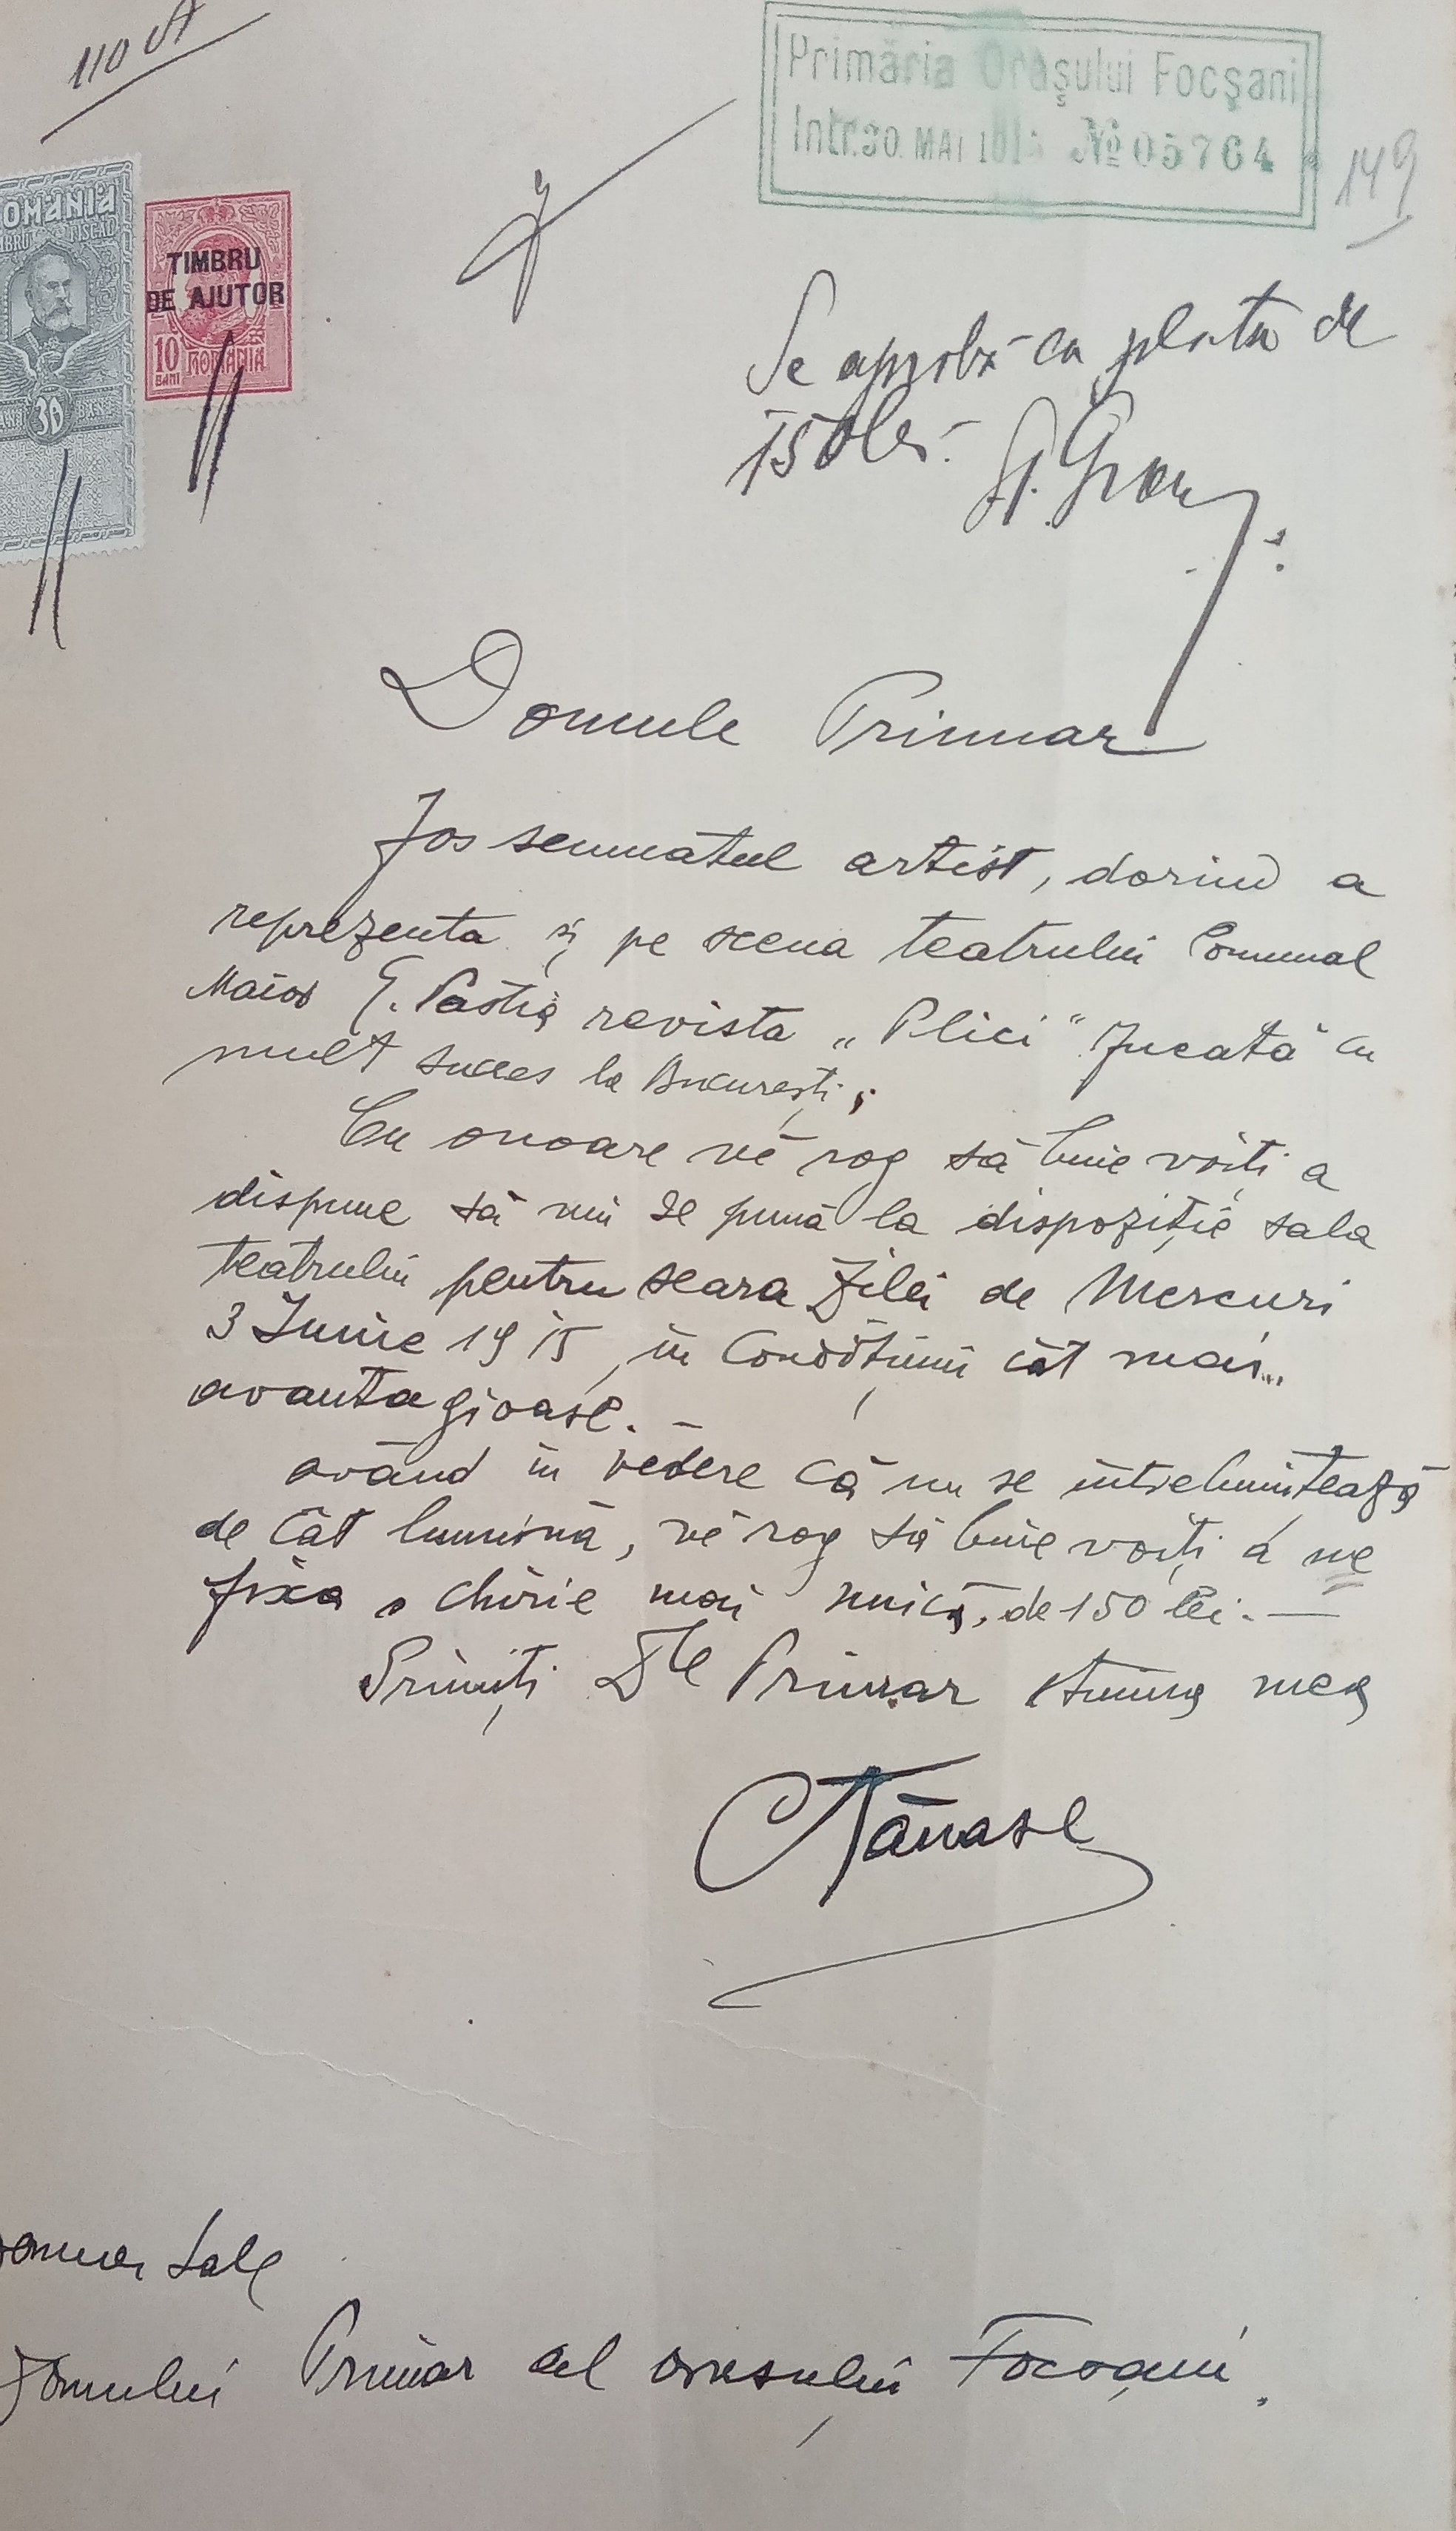 110
Primăria Orașului Focșani
Intr. 30. MAI 1915 № 05764
149
ROMANIA
TIMBRU FISCAL
30 BANI
TIMBRU
DE AJUTOR
10 BANI ROMANIA
Se aprobă cu plata de
150 lei.
Domnule Primar
Jos semnatul artist, dorind a
reprezenta și pe scena teatrului Comunal
Maior G. Pastia revista „Plici" Jucată cu
mult succes la București;
Cu onoare vĕ rog să bine voiți a
dispune să mi se pună la dispoziție sala
teatrului pentru seara Zilei de Mercuri
3 Iunie 1915, în Condițiuni cât mai
avantagioase. –
având în vedere că nu se întrebuințează
de cât lumina, vĕ rog să bine voiți a ne
fixa o chirie mai mică, de 150 lei. —
Primiți Dle Primar stima mea
CTănase
Domniei Sale
Domnului Primar al orașului Focșani.